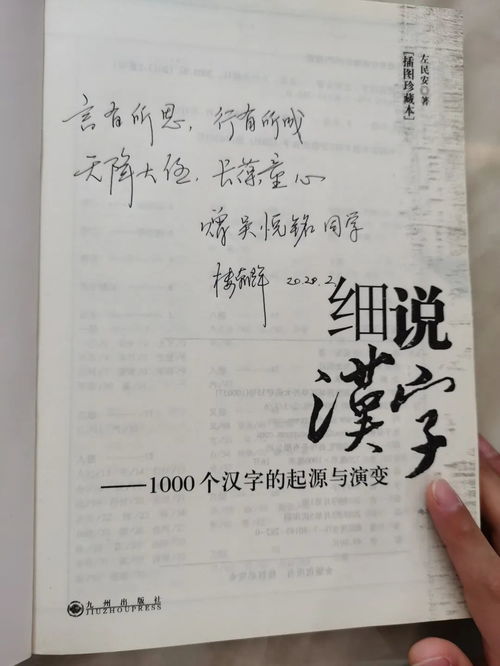 左民安◎著
[插图珍藏本]
言有所思，行有所成
天降大任，长葆童心
赠吴悦铭同学
2020.2
细说
漢字
——1000个汉字的起源与演变
九州出版社
JIUZHOUPRESS